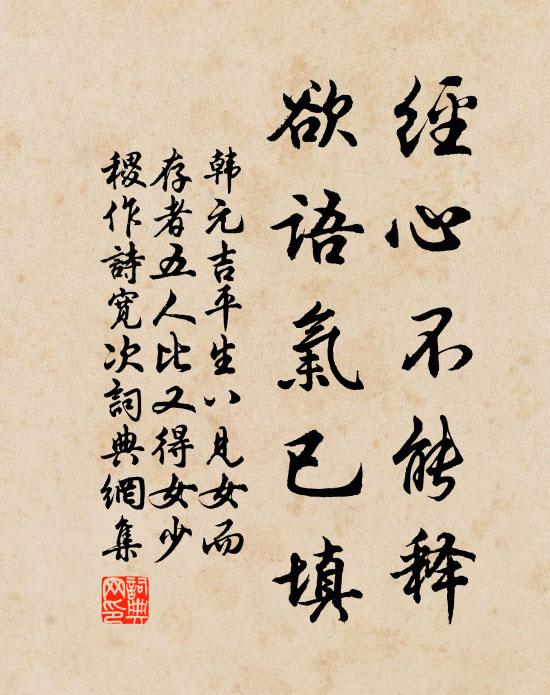 經心不能释
欲語氣已填
韩元吉平生八見女而
存者五人比又得女少
稷作詩寬次詞典網集
詞典網印